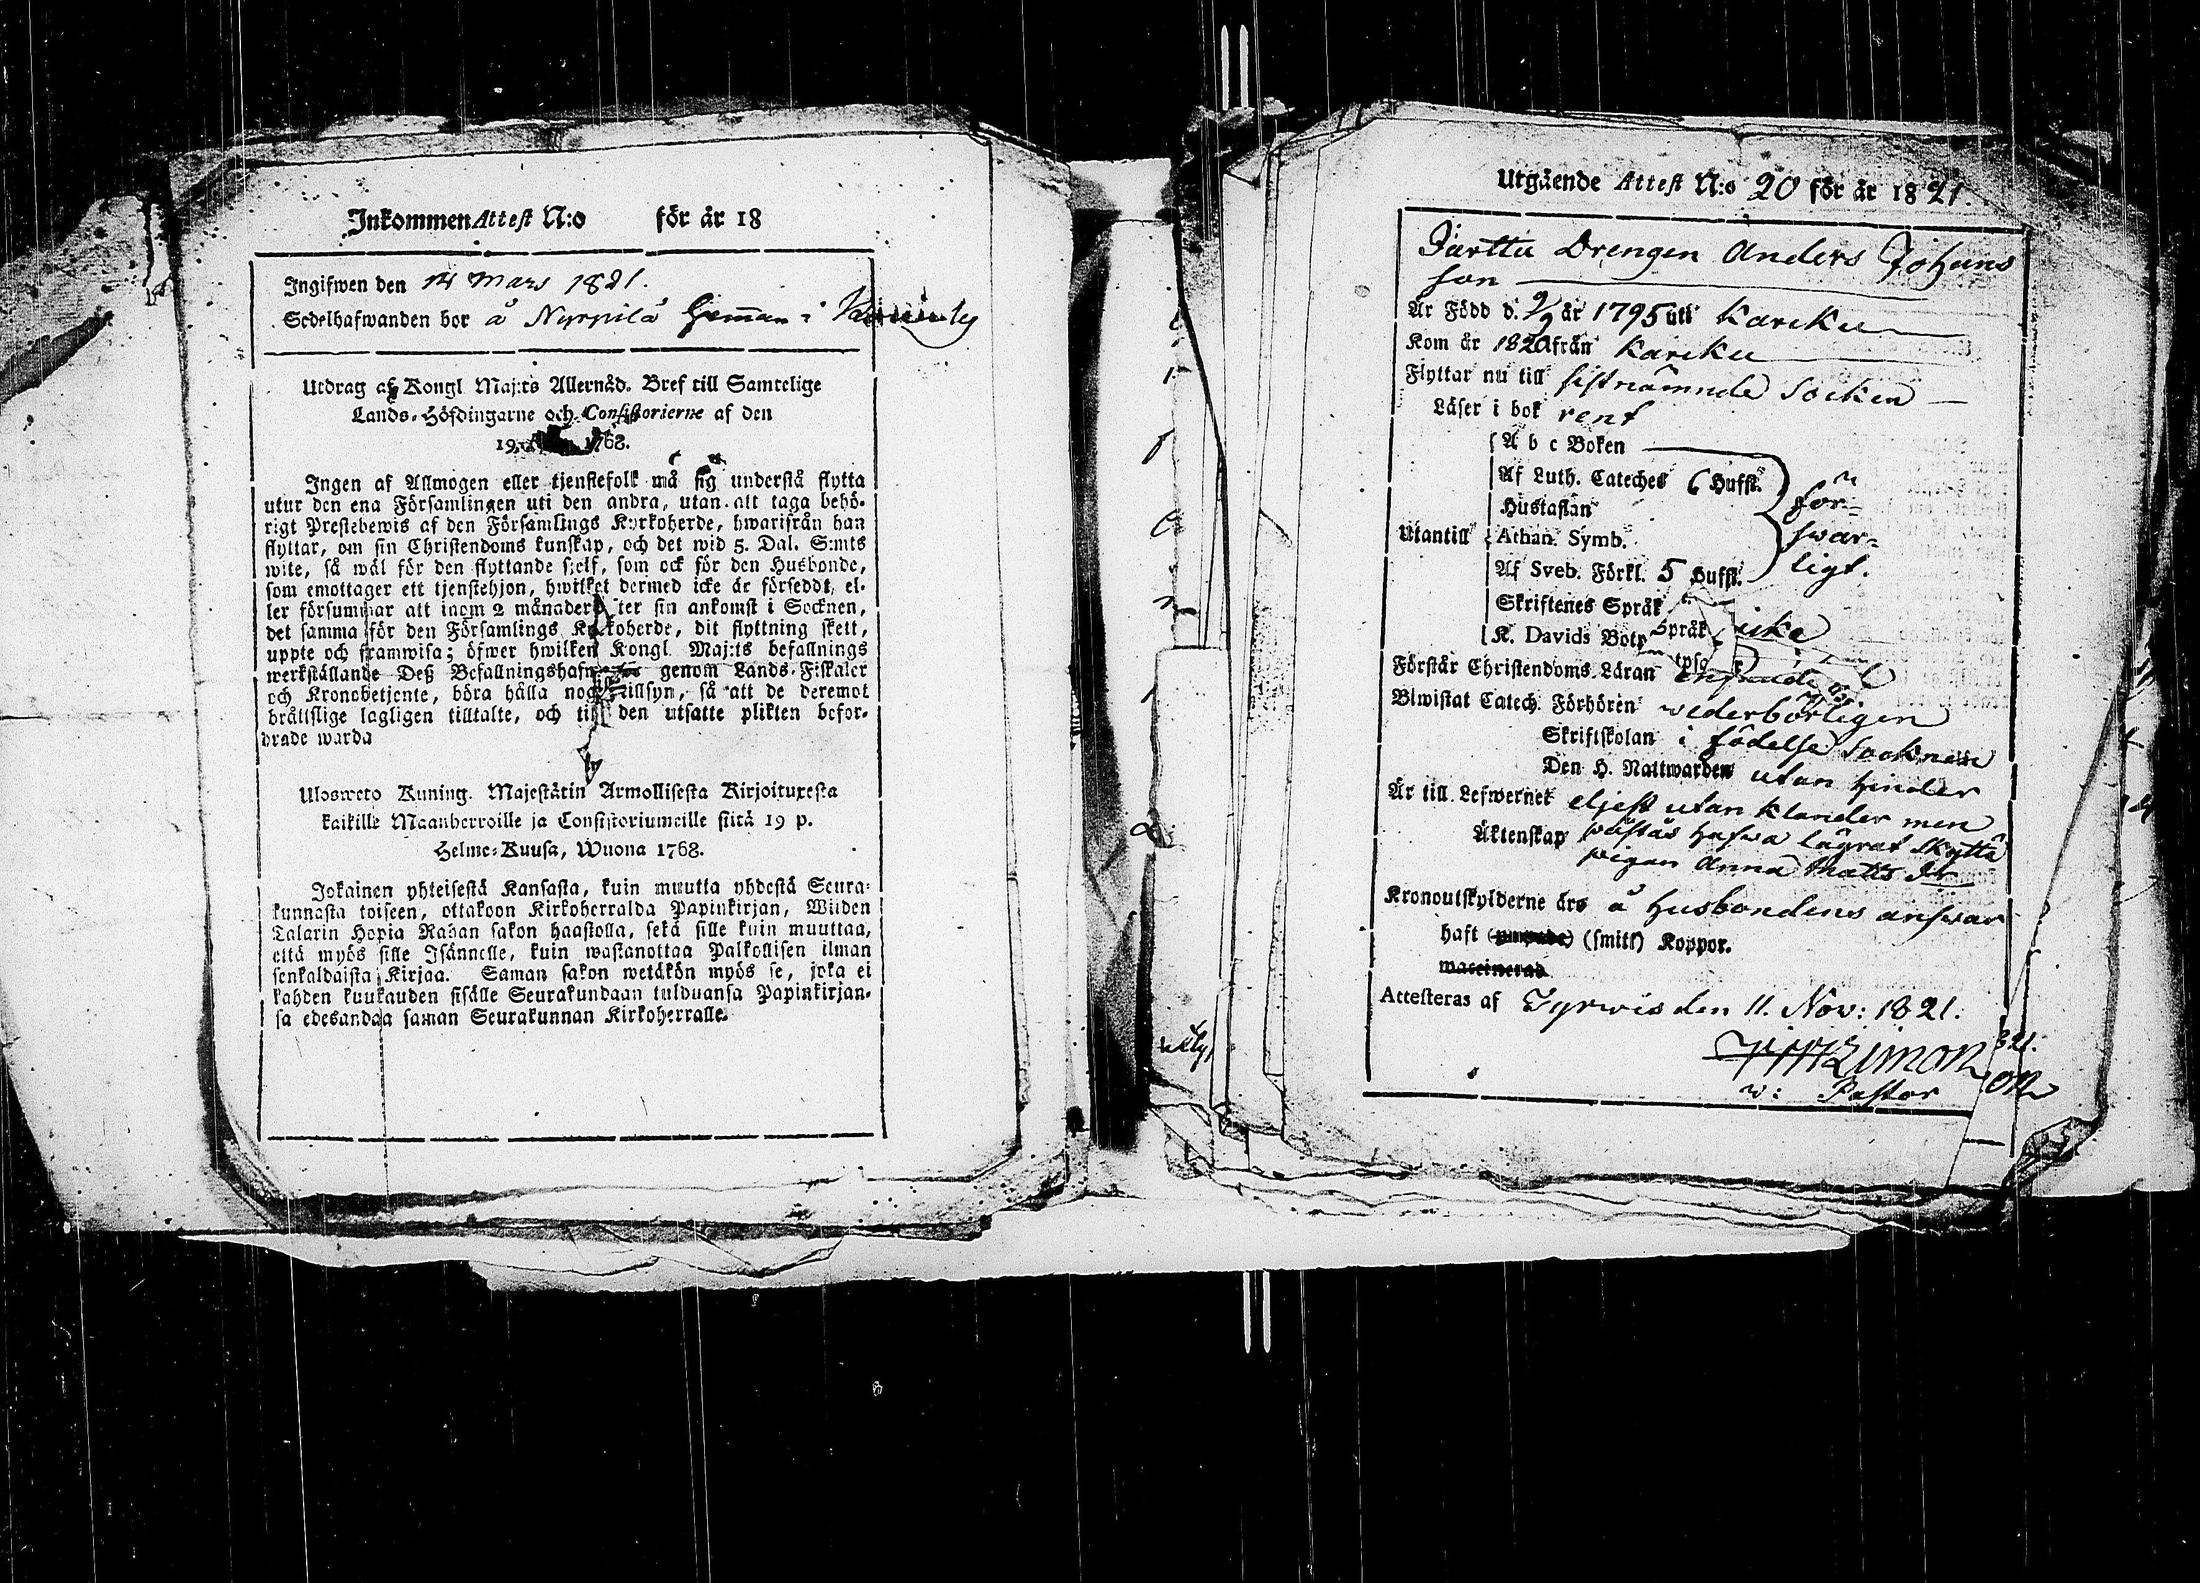 Inkommen Attest N:o för år 18
Ingifwen den 14 Mars 1821.
Sedelhafwanden bor å Nyrpilä Hemman i
Utdrag af Kongl Maj:ts Allernåd. Bref till Samtelige
Lands-Höfdingarne och Consistorierne af den
19 1768.
Ingen af Allmogen eller tjenstefolk må sig understå flytta
utur den ena Församlingen uti den andra, utan att taga behö-
rigt Prestebewis af den Församlings Kyrkoherde, hwarifrån han
flyttar, om sin Christendoms kunskap, och det wid 5. Dal. S:mts
wite, så wäl för den flyttande sjelf, som ock för den Husbonde,
som emottager ett tjenstehjon, hwilket dermed icke är förseddt, el-
ler försummar att inom 2 månader ter sin ankomst i Socknen,
det samma för den Församlings Kyrkoherde, dit flyttning skett,
uppte och framwisa; öfwer hwilken Kongl. Maj:ts befallnings
werkställande Deß Befallningshafwande genom Lands-Fiskaler
och Kronobetjente, böra hålla noga tillsyn, så att de deremot
bråttslige lagligen tilltalte, och till den utsatte plikten befor-
drade warda
Uloswето Kuning. Majestätin Armollisesta Kirjoituxesta
kaikille Maanherroille ja Consistoriumeille siitä 19 p.
Helme-Kuusa, Wuona 1768.
Jokainen yhteisestä Kansasta, kuin muutta yhdestä Seura-
kunnasta toiseen, ottakoon Kirkoherralda Papinkirjan, Wiiden
Talarin Hopia Rahan sakon haastolla, sekä sille kuin muuttaa,
että myös sille Isännelle, kuin wastanottaa Palkollisen ilman
senkaldaista Kirjaa. Saman sakon wetäkön myös se, joka ei
kahden kuukauden sisälle Seurakundaan tulduansa Papinkirjan-
sa edesandaa saman Seurakunnan Kirkoherralle.
Utgående Attest N:o 20 för år 1821.
Jarttu Drengen Anders Johans
son
Är Född d. 9/9 år 1795 uti Karcku
Kom år 1820 från Karcku
Flyttar nu till sistnämnde Socken
Läser i bok rent
A b c Boken
Af Luth. Cateches 6 Hufst.
Hustaflan
Utantill Athan. Symb.
Af Sveb. Förkl. 5 Hufst.
för-
swar-
ligt.
Skriftenes Språk
K. Davids Botp icke
Förstår Christendoms Läran
Biwistat Catech. Förhören wederbörligen
Skriftskolan i födelse Socknen
Den H. Nattwarden utan hinder
Är till Lefwernet eljest utan klander men
Äktenskap påstås hafwa lägrat Skyttä
pigan Anna Matts Dr
Kronoutskylderne års å Husbondens answar
haft (smitt) Koppor.
Attesteras af Tyrwis den 11. Nov: 1821.
Limon
v: Pastor